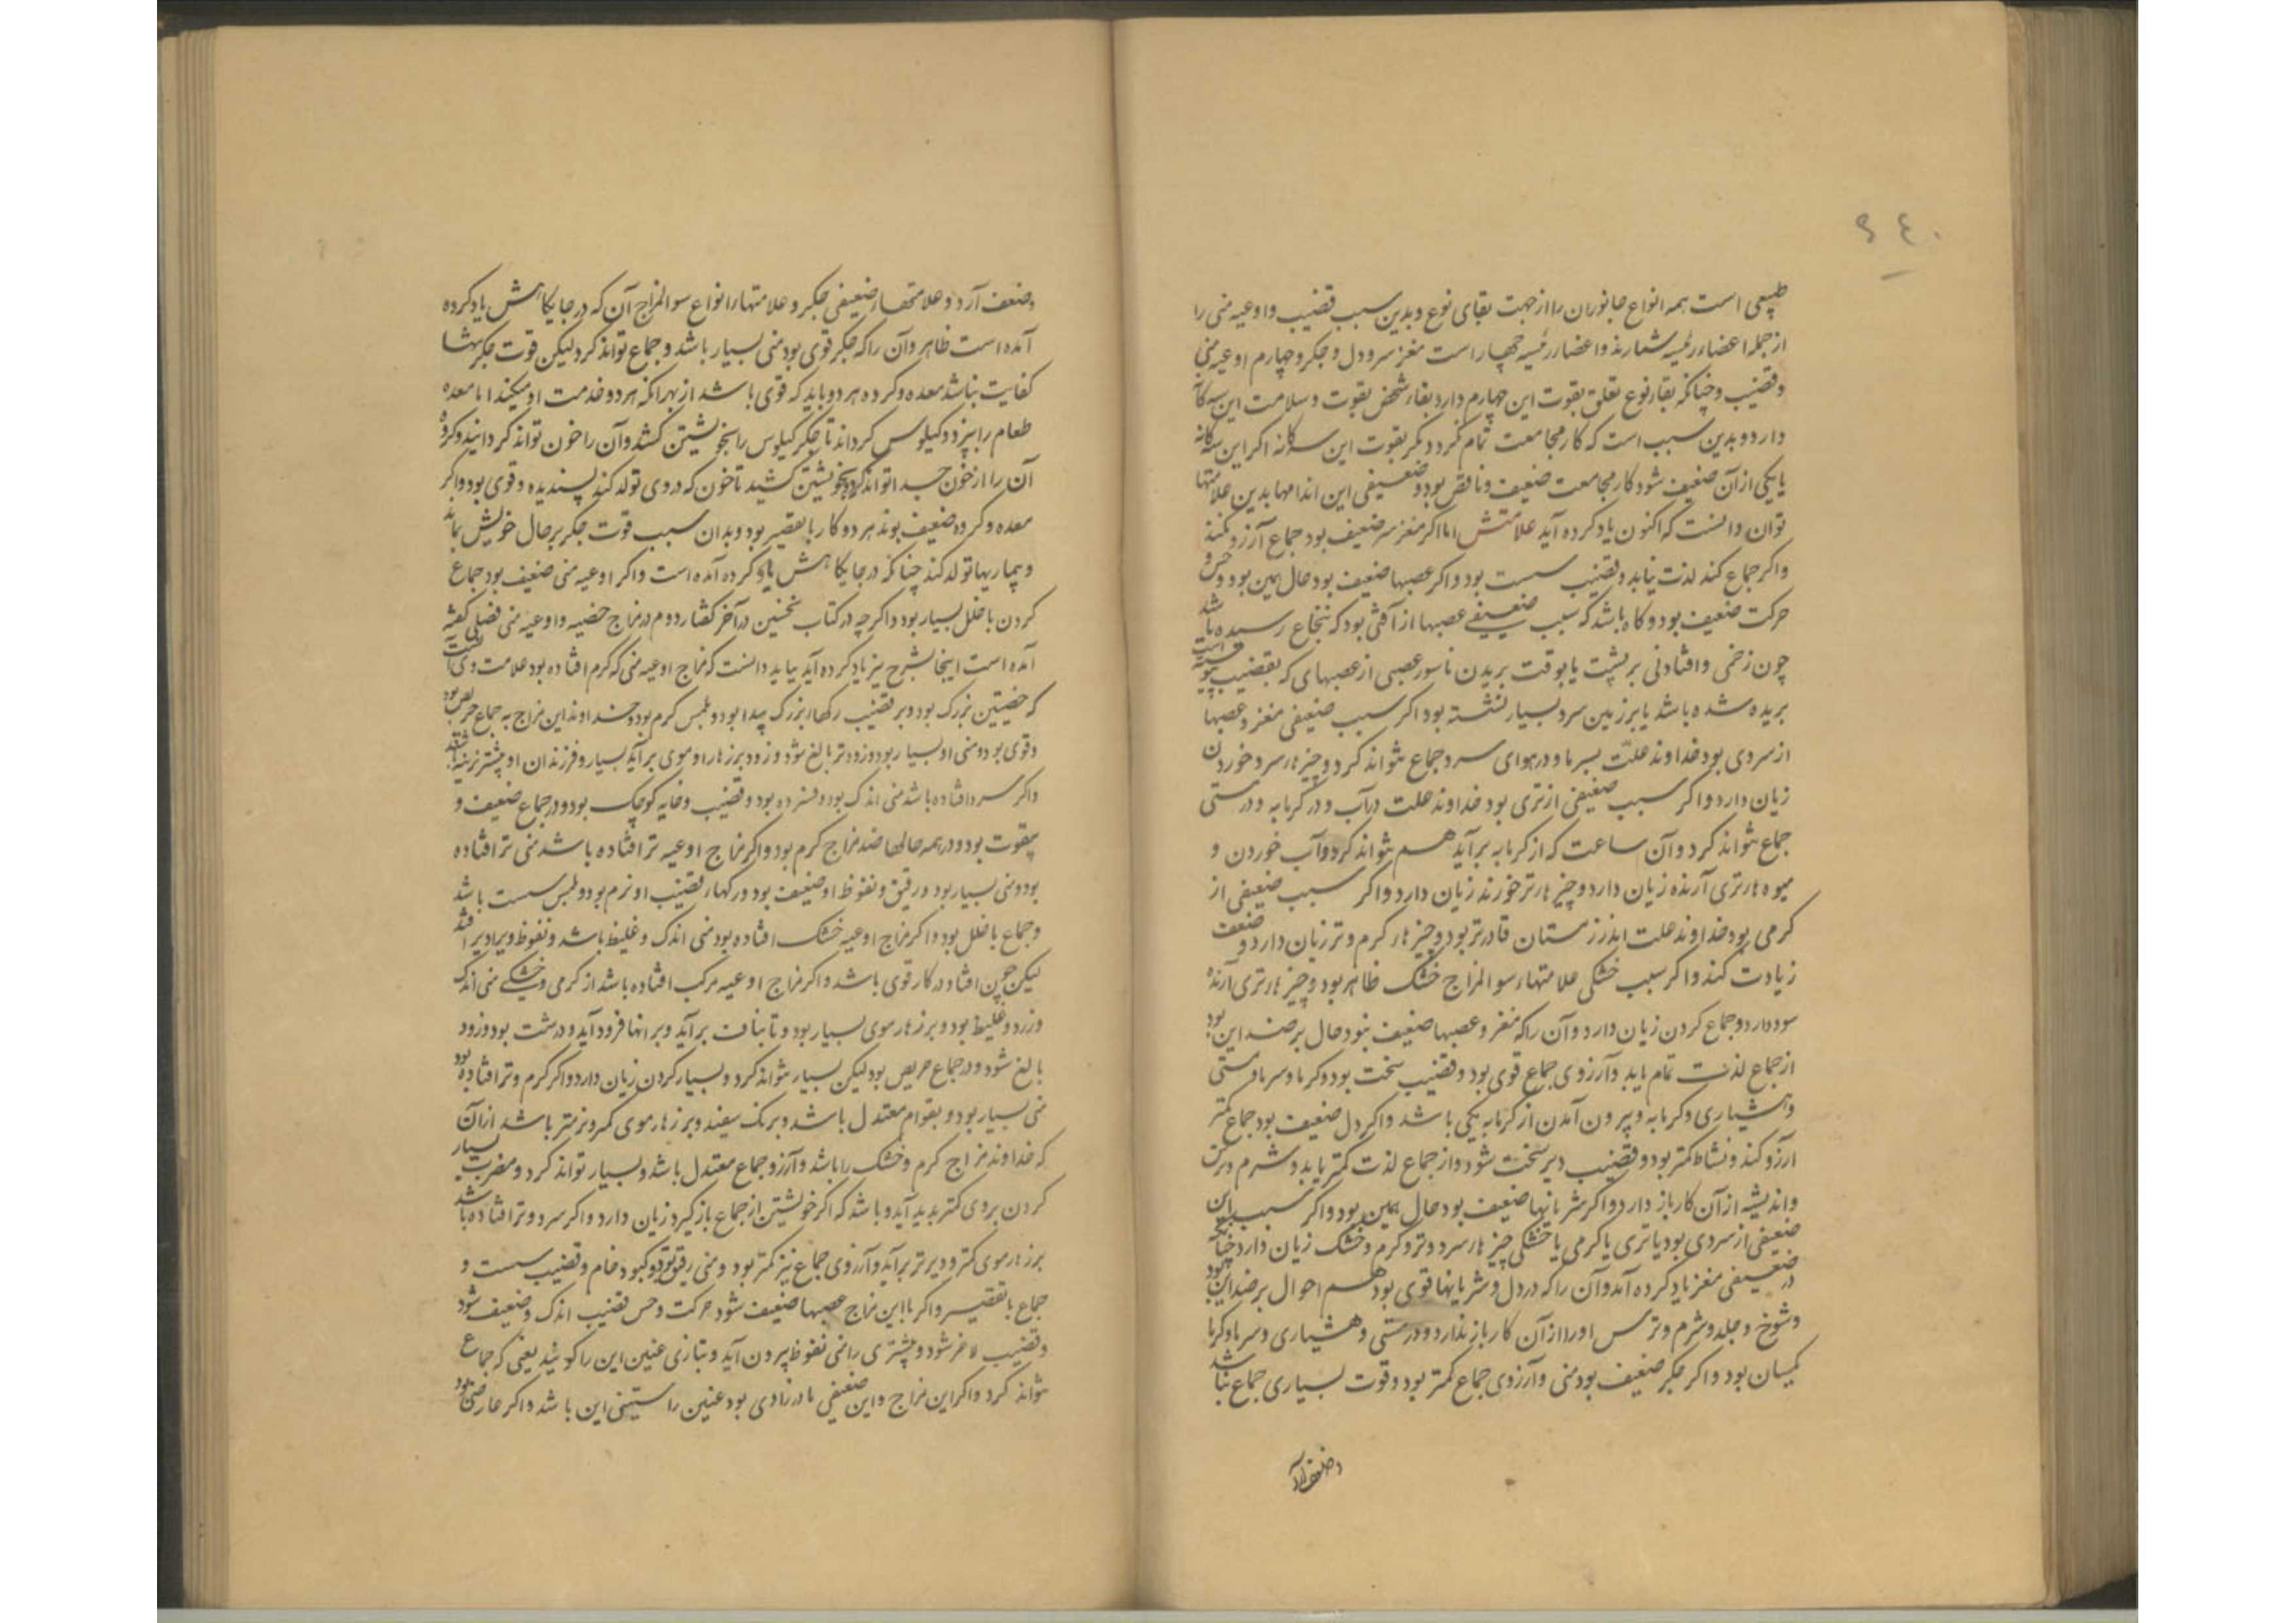 ۹۴۰
طبیعی است همه انواع جانوران را از جهت بقای نوع و بدین سبب قضیب و اوعیه منی را
از جمله اعضاء رئیسه شمارند و اعضاء رئیسه چهار است مغز سر و دل و جکر و چهارم اوعیه منی
و قضیب و چنانکه بقاء نوع تعلق بقوت این چهارم دارد بقاء شخص بقوت و سلامت این سه کانه
دارد و بدین سبب است که کار مجامعت تمام نکردد مکر بقوت این سه کانه اکر این سه کانه
یا یکی از آن ضعیف شود کار مجامعت ضعیف و ناقص بود و ضعیفی این اندامها بدین علامتها
توان دانست که اکنون یاد کرده آید علامتش اما اکر مغز سر ضعیف بود جماع آرزو نکند
و اکر جماع کند لذت نیابد و قضیب سست بود و اکر عصبها ضعیف بود حال همین بود و حس و
حرکت ضعیف بود و کاه باشد که سبب ضعیفی عصبها از آفتی بود که بنخاع رسیده باشد
چون زخمی و افتادنی بر پشت یا بوقت بریدن ناسور عصبی از عصبهای که بقضیب پیوسته است
بریده شده باشد یا بر زمین سرد بسیار نشسته بود اکر سبب ضعیفی مغز و عصبها
از سردی بود خداوند علّت بسرما و در هوای سرد جماع نتواند کرد و چیزهاء سرد خوردن
زیان دارد و اکر سبب ضعیفی از تری بود خداوند علت در آب و در کرمابه و در مستی
جماع نتواند کرد و آن ساعت که از کرمابه برآید هم نتواند کرد و آب خوردن و
میوه هاء تری آرنده زیان دارد و چیزهاء تر خورند زیان دارد و اکر سبب ضعیفی از
کرمی بود خداوند علت اندر زمستان قادرتر بود و چیزهاء کرم و تر زیان دارد و ضعف
زیادت کند و اکر سبب خشکی علامتهاء سوء المزاج خشک ظاهر بود و چیزهاء تری آرنده
سود دارد و جماع کردن زیان دارد و آن را که مغز و عصبها ضعیف نبود حال بر ضد این بود
از جماع لذت تمام یابد و آرزوی جماع قوی بود و قضیب سخت بود و کرما و سرما و مستی
و هشیاری و کرمابه و بیرون آمدن از کرمابه یکی باشد و اکر دل ضعیف بود جماع کمتر
آرزو کند و نشاط کمتر بود و قضیب دیر سخت شود و از جماع لذت کمتر یابد و شرم و ترس
و اندیشه از آن کار باز دارد و اکر شریانها ضعیف بود حال همین بود و اکر سبب این
ضعیفی از سردی بود یا تری یا کرمی یا خشکی چیزهاء سرد و تر و کرم و خشک زیان دارد چنانکه
در ضعیفی مغز یاد کرده آمد و آن را که در دل و شریانها قوی بود هم احوال بر ضد این بود
و شوخ و جلد و شرم و ترس او را از آن کار باز ندارد و در مستی و هشیاری و سرما و کرما
یکسان بود و اکر جکر ضعیف بود منی و آرزوی جماع کمتر بود و قوت بسیاری جماع نباشد
و ضعف آرد
و ضعف آرد و علامتهاء ضعیفی جکر و علامتهاء انواع سوء المزاج آن که در جایکاهش یاد کرده
آمده است ظاهر و آن را که جکر قوی بود منی بسیار باشد و جماع تواند کرد لیکن قوت جکر تنها
کفایت نباشد معده و کرده هر دو باید که قوی باشد از بهر آنکه هر دو خدمت او میکنند اما معده
طعام را بپزد و کیلوس کرداند تا جکر کیلوس را بخویشتن کشد و آن را خون تواند کردانید و کرده
آن را از خون جدا تواند کرد و بخویشتن کشید تا خون که در وی تولد کند پسندیده و قوی بود و اکر
معده و کرده ضعیف بوند هر دو کار با تقصیر بود و بدان سبب قوت جکر بر حال خویش نماند
و بیماریها تولد کند چنانکه در جایکاهش یاد کرده آمده است و اکر اوعیه منی ضعیف بود جماع
کردن با خلل بسیار بود و اکر چه در کتاب نخستین در آخر کفتار دوم در مزاج خصیه و اوعیه منی فصلی کفته
آمده است اینجا بشرح نیز یاد کرده آید بباید دانست که مزاج اوعیه منی که کرم افتاده بود علامت وی آنست
که خصیتین بزرک بود و بر قضیب رکهاء بزرک پیدا بود و ملمس کرم بود و خداوند این مزاج به جماع حریص بود
و قوی بود و منی او بسیار بود و زودتر بالغ شود و زود بر زهار او موی برآید بسیار و فرزندان او بیشتر نرینه باشند
و اکر سرد افتاده باشد منی اندک بود و فسرده بود و قضیب و خایه کوچک بود و در جماع ضعیف و
بیقوت بود و در همه حالها ضد مزاج کرم بود و اکر مزاج اوعیه تر افتاده باشد منی تر افتاده
بود و منی بسیار بود و رقیق و نغوظ او ضعیف بود و رکهاء قضیب او نرم بود و ملمس سست باشد
و جماع با خلل بود و اکر مزاج اوعیه خشک افتاده بود منی اندک و غلیظ باشد و نغوظ ویرا دیر افتد
لیکن چون افتاد در کار قوی باشد و اکر مزاج اوعیه مرکب افتاده باشد از کرمی و خشکی منی اندک
و زرد و غلیظ بود و بر زهار موی بسیار بود و تا بناف برآید و برانها فرود آید و درشت بود و زود
بالغ شود و در جماع حریص بود لیکن بسیار نتواند کرد و بسیار کردن زیان دارد و اکر کرم و تر افتاده بود
منی بسیار بود و بقوام معتدل باشد و برنک سفید و بر زهار موی کمتر و نرمتر باشد از آن
که خداوند مزاج کرم و خشک را باشد و آرزو جماع معتدل باشد و بسیار تواند کرد و مضرت بسیار
کردن بر وی کمتر پدید آید و باشد که اکر خویشتن از جماع باز کیرد زیان دارد و اکر سرد و تر افتاده باشد
بر زهار موی کمتر و دیرتر برآید و آرزوی جماع نیز کمتر بود و منی رقیق بود و کبود و خام و قضیب سست و
جماع با تقصیر و اکر با این مزاج عصبها ضعیف شود حرکت و حس قضیب اندک و ضعیف شود
و قضیب لاغر شود و بیشتری را منی نغوظ بیرون آید و بتازی عنین این را کویند یعنی که جماع
نتواند کرد و اکر این مزاج و این ضعیفی مادرزادی بود عنین راستینی این باشد و اکر عارضی بود